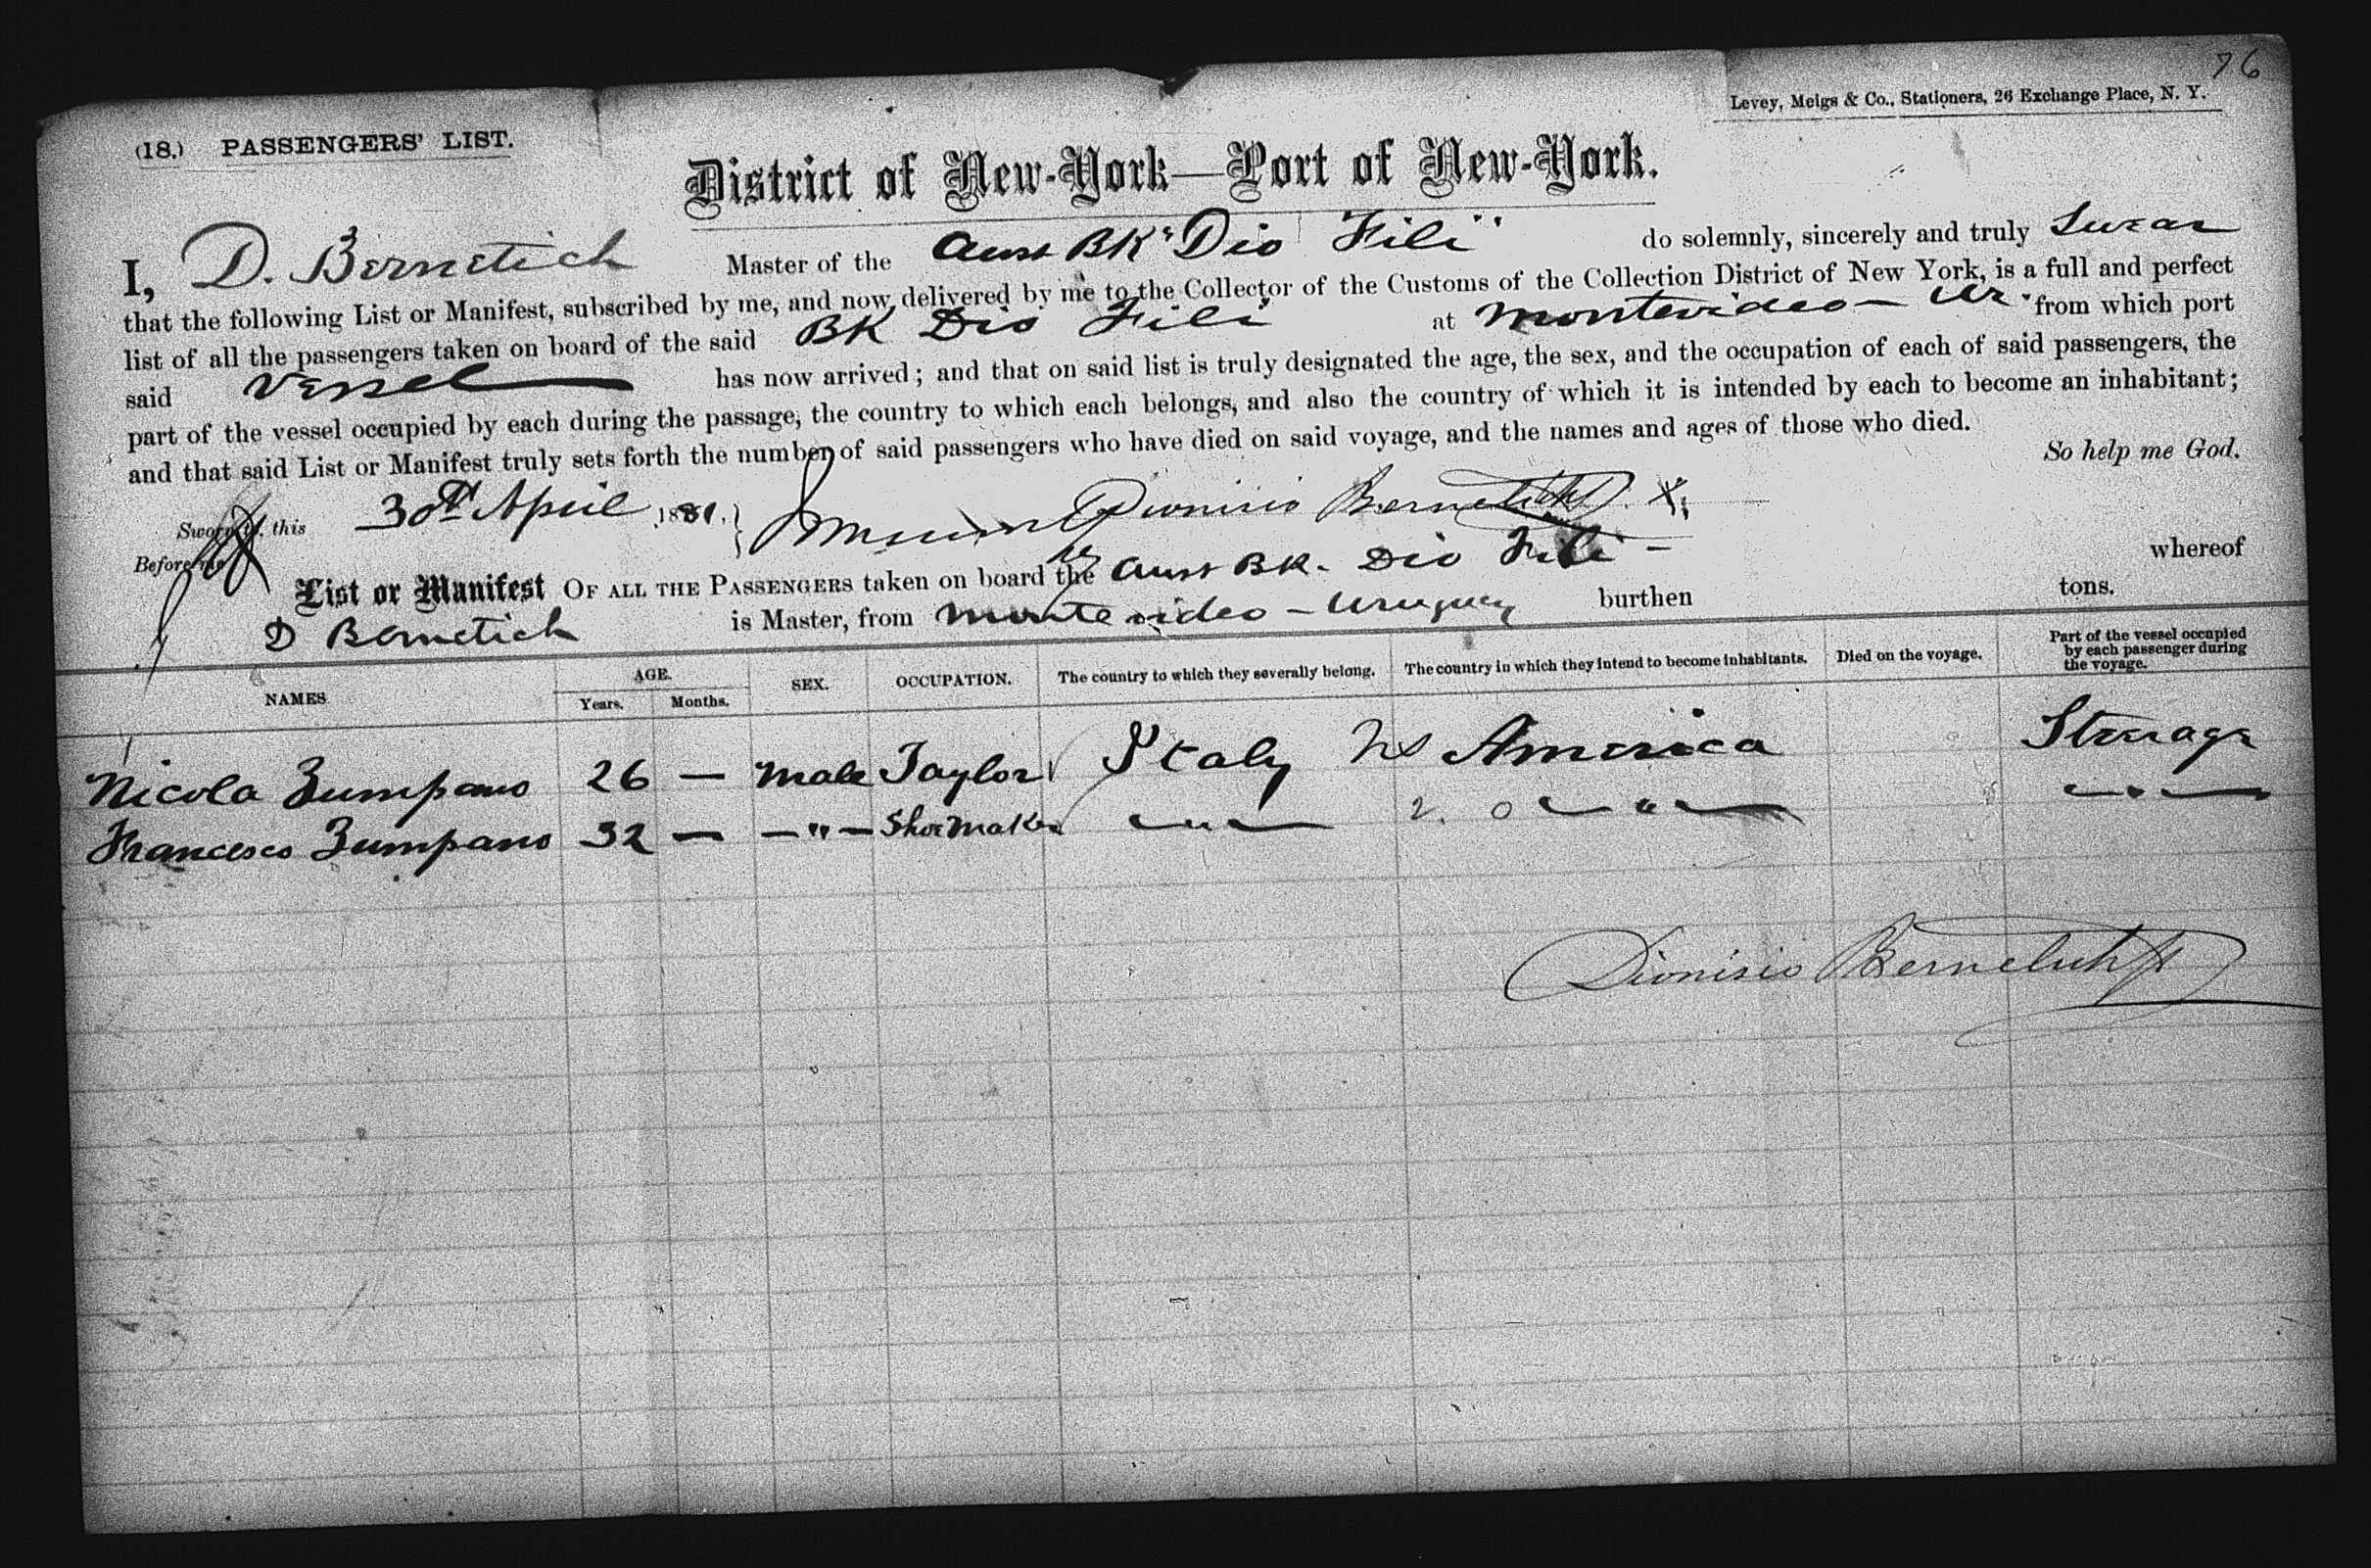 76
Levey, Meigs & Co., Stationers, 26 Exchange Place, N. Y.
(18.) PASSENGERS' LIST.
District of New-York—Port of New-York.
I, D. Bernetich Master of the Aust BK "Dio Fili" do solemnly, sincerely and truly Swear
that the following List or Manifest, subscribed by me, and now delivered by me to the Collector of the Customs of the Collection District of New York, is a full and perfect
list of all the passengers taken on board of the said BK Dio Fili at Montevideo — Ur. from which port
said Vessel has now arrived; and that on said list is truly designated the age, the sex, and the occupation of each of said passengers, the
part of the vessel occupied by each during the passage, the country to which each belongs, and also the country of which it is intended by each to become an inhabitant;
and that said List or Manifest truly sets forth the number of said passengers who have died on said voyage, and the names and ages of those who died.
So help me God.
Sworn to, this 30th April 1881. Dionisio Bernetich
Before me
List or Manifest OF ALL THE PASSENGERS taken on board the Aust BK. Dio Fili — whereof
D Bernetich is Master, from Montevideo — Uruguay burthen tons.
NAMES AGE. Years. Months. SEX. OCCUPATION. The country to which they severally belong. The country in which they intend to become inhabitants. Died on the voyage. Part of the vessel occupied by each passenger during the voyage.
Nicola Zumpano 26 — Male Taylor Italy America Steerage
Francesco Zumpano 32 — —"— Shoemaker —"— —"— —"—
Dionisio Bernetich